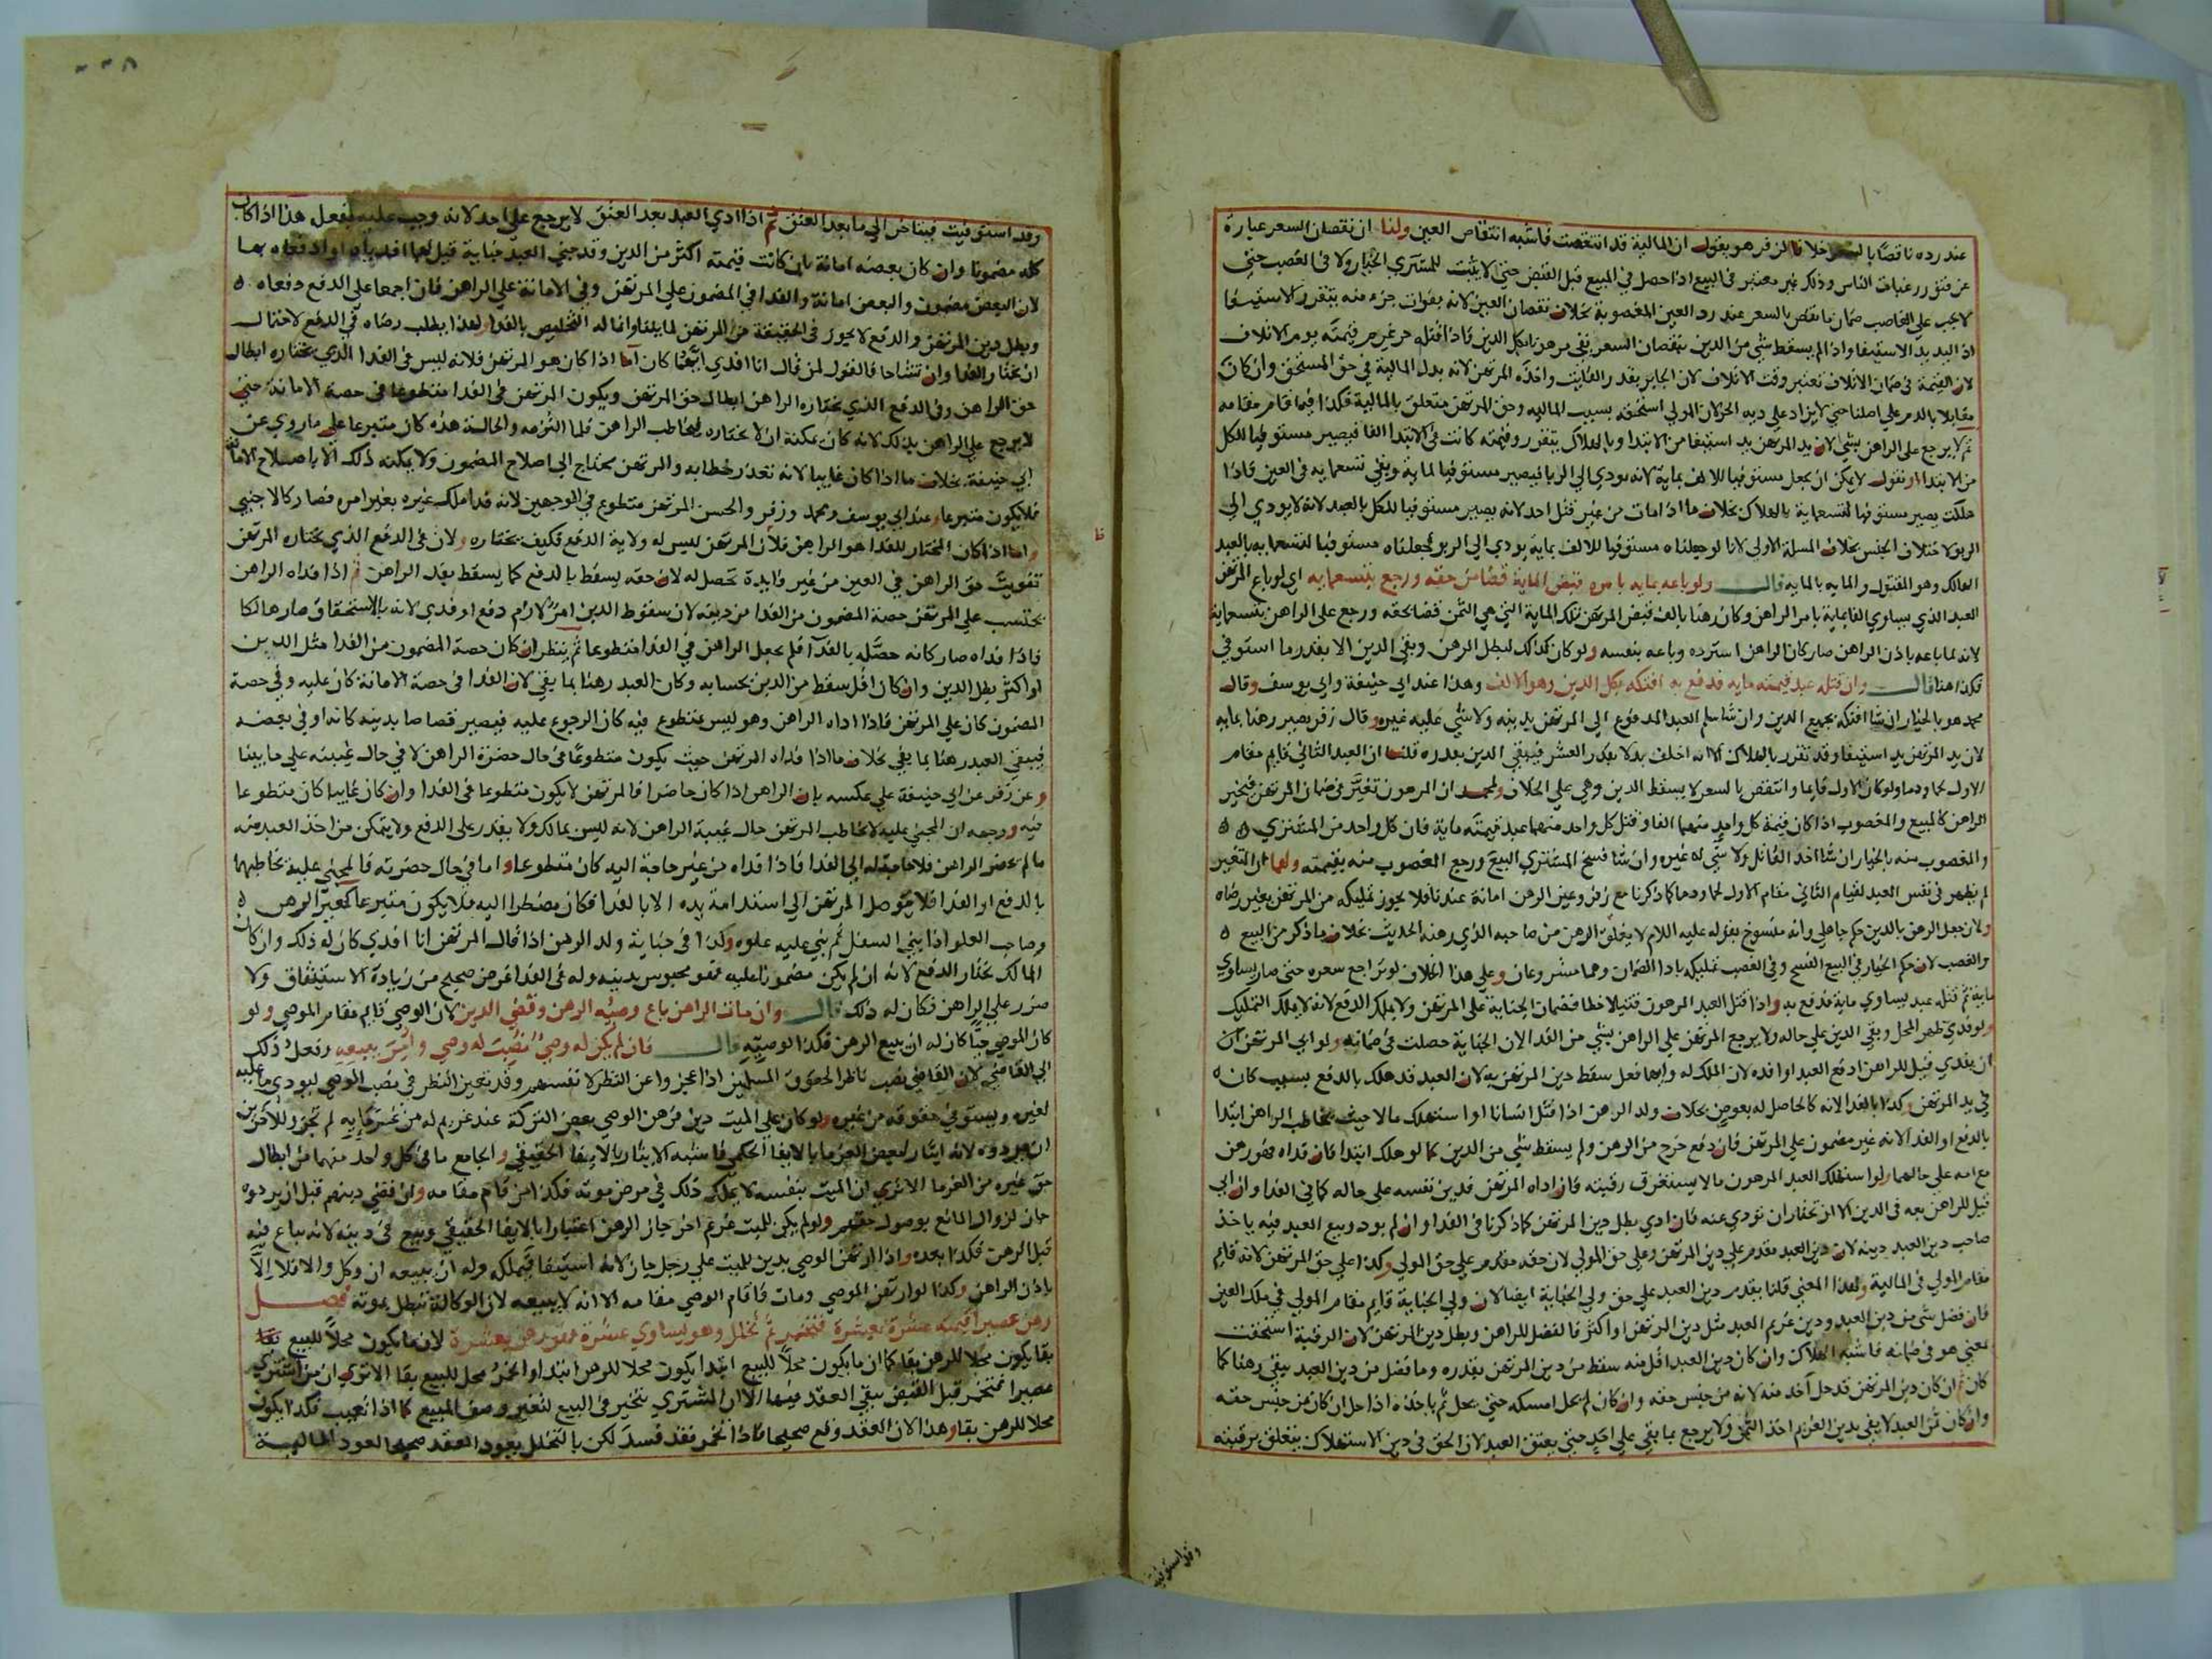 عند رده ناقصا بالسعر خلافا لزفر هو يقول ان المالية قد انتقصت فاشبه انتقاص العين ولنا ان نقصان السعر عبارة
عن فتور رغبات الناس وذلك غير معتبر في البيع اذا حصل في المبيع قبل القبض حتى لا يثبت للمشتري الخيار ولا في الغصب حتى
لا يجب على الغاصب ضمان ما نقص بالسعر عند رد العين المغصوبة بخلاف نقصان العين لانه بفوات جزء منه يتقرر الاستيفا
اذ اليد يد الاستيفا واذا لم يسقط شي من الدين بنقصان السعر بقي مرهونا بكل الدين فاذا قتله حر غرم قيمته يوم الاتلاف
لان القيمة في ضمان الاتلاف تعتبر وقت الاتلاف لان الجابر بقدر الفايت واخذه المرتهن لانه بدل المالية في حق المستحق وان كان
مقابلا بالدم على اصلنا حتى لا يزاد على دية الحر لان المولى استحقه بسبب المالية وحق المرتهن متعلق بالمالية فكذا فيما قام مقامه
ثم لا يرجع على الراهن بشي لان يد المرتهن يد استيفا من الابتدا وبالهلاك يتقرر وقيمته كانت في الابتدا الفا فيصير مستوفيا للكل
من الابتدا او نقول لا يمكن ان يجعل مستوفيا للالف بماية لانه يودي الى الربا فيصير مستوفيا لماية وبقي تسعماية في العين فاذا
هلكت يصير مستوفيا لتسعماية بالهلاك بخلاف ما اذا مات من غير قتل احد لانه يصير مستوفيا للكل بالعبد لانه لا يودي الى
الربو لاختلاف الجنس بخلاف المسلة الاولى لانا لو جعلناه مستوفيا للالف بماية يودي الى الربو فجعلناه مستوفيا لتسعمايه بالعبد
الهالك وهو المقتول والمايه بالمايه قال ولو باعه بمايه بامره قبض الماية قضا من حقه ورجع بتسعمايه اي لو باع المرتهن
العبد الذي يساوي الفا بماية بامر الراهن وكان رهنا بالف قبض المرتهن تلك الماية التي هي الثمن قضا لحقه ورجع على الراهن بتسعماية
لانه لما باعه باذن الراهن صار كان الراهن استرده وباعه بنفسه ولو كان كذلك لبطل الرهن وبقي الدين الا بقدر ما استوفي
فكذا هنا قال وان قتله عبد قيمته مايه فدفع به افتكه بكل الدين وهو الالف وهذا عند ابي حنيفة وابي يوسف وقال
محمد هو بالخيار ان شا افتكه بجميع الدين وان شا سلم العبد المدفوع الى المرتهن بدينه ولا شي عليه غيره وقال زفر يصير رهنا بمايه
لان يد المرتهن يد استيفا وقد تقرر بالهلاك الا انه اخلف بدلا بقدر العشر فيبقى الدين بقدره قلنا ان العبد الثاني قايم مقام
الاول لحما ودما ولو كان الاول قايما وانتقص بالسعر لا يسقط الدين وهي على الخلاف ولمحمد ان المرهون تغير في ضمان المرتهن فيخير
الراهن كالمبيع والمغصوب اذا كان قيمة كل واحد منهما الفا وقتل كل واحد منهما عبد قيمته ماية فان كل واحد من المشتري
والمغصوب منه بالخيار ان شا اخذ القاتل ولا شي له غيره وان شا فسخ المشتري البيع ورجع المغصوب منه بقيمته ولهما ان التغير
لم يظهر في نفس العبد لقيام الثاني مقام الاول لحما ودما كما ذكرنا مع زفر وعين الرهن امانة عندنا فلا يجوز تمليكه من المرتهن بغير رضاه
ولان جعل الرهن بالدين حكم جاهلي وانه منسوخ بقوله عليه اللام لا يغلق الرهن من صاحبه الذي رهنه الحديث بخلاف ما ذكر من البيع
والغصب لان حكم الخيار في البيع الفسخ وفي الغصب تمليكه بادا الضمان وهما مشروعان وعلى هذا الخلاف لو تراجع سعره حتى صار يساوي
ماية ثم قتله عبد يساوي ماية فدفع به واذا قتل العبد المرهون قتيلا خطا فضمان الجناية على المرتهن ولا يملك الدفع لانه لا يملك التمليك
ولو فدى طهر المحل وبقي الدين على حاله ولا يرجع المرتهن على الراهن بشي من الفدا لان الجناية حصلت في ضمانه ولو ابى المرتهن ان
ان يفدي قيل للراهن ادفع العبد او افده لان الملك له وايهما فعل سقط دين المرتهن به لان العبد قد هلك بالدفع بسبب كان
في يد المرتهن وكذا بالفدا لانه كالحاصل له بعوض بخلاف ولد الرهن اذا قتل انسانا او استهلك مالا حيث يخاطب الراهن ابتدا
بالدفع او الفدا لانه غير مضمون على المرتهن فان دفع خرج من الرهن ولم يسقط شي من الدين كما لو هلك ابتدا فان فداه فهو رهن
مع امه على حالهما ولو استهلك العبد المرهون مالا يستغرق رقبته فان اداه المرتهن فدين نفسه على حاله كما في الفدا وان ابى
قيل للراهن بعه في الدين الا ان تختار ان تودي عنه فان ادي بطل دين المرتهن كما ذكرنا في الفدا وان لم يود وبيع العبد فيه ياخذ
صاحب دين العبد دينه لان دين العبد مقدم على دين المرتهن وعلى حق المولى لان حقه مقدم على حق المولى وكذا على حق المرتهن لانه قايم
مقام المولى في المالية ولهذا المعنى قلنا بقدم دين العبد على حق ولي الجناية ايضا لان ولي الجناية قايم مقام المولى في ملك العين
فان فضل شي من دين العبد ودين غريم العبد مثل دين المرتهن او اكثر فالفضل للراهن وبطل دين المرتهن لان الرقبة استحقت
لمعنى هو في ضمانه فاشبه الهلاك وان كان دين العبد اقل منه سقط من دين المرتهن بقدره وما فضل من دين العبد يبقى رهنا كما
كان ثم ان كان دين المرتهن قد حل اخذ منه لانه من جنس حقه وان كان لم يحل امسكه حتى يحل ثم ياخذه اذا حل ان كان من جنس حقه
وان كان ثمن العبد لا يفي بدين الغريم اخذ الثمن ولا يرجع بما بقي على احد حتى يعتق العبد لان الحق في دين الاستهلاك يتعلق برقبته
وقد استوفيت
وقد استوفيت فيتاخر الى ما بعد العتق ثم اذا ادي العبد بعد العتق لا يرجع على احد لانه وجب عليه بفعل هذا اذا كان
كله مضمونا وان كان بعضه امانة بان كانت قيمته اكثر من الدين وقد جنى العبد جناية قيل لهما افدياه او ادفعاه بها
لان البعض مضمون والبعض امانة والفدا في المضمون على المرتهن وفي الامانة على الراهن فان اجمعا على الدفع دفعاه
وبطل دين المرتهن والدفع لا يجوز في الحقيقة من المرتهن لما بلغنا وانما له التخليص بالفدا ولهذا يطلب رضاه في الدفع لاحتمال
ان يختار الفدا وان تشاحا فالقول لمن قال انا افدي ايهما كان اما اذا كان هو المرتهن فلانه ليس في الفدا الذي يختاره ابطال
حق الراهن وفي الدفع الذي يختاره الراهن ابطال حق المرتهن ويكون المرتهن في الفدا متطوعا في حصة الامانة حتى
لا يرجع على الراهن بذلك لانه كان يمكنه ان لا يختاره فيخاطب الراهن فلما التزمه والحالة هذه كان متبرعا على ما روي عن
ابي حنيفة بخلاف ما اذا كان غايبا لانه تعذر خطابه والمرتهن يحتاج الى اصلاح المضمون ولا يمكنه ذلك الا باصلاح الامانة
فلا يكون متبرعا وعند ابي يوسف ومحمد وزفر والحسن المرتهن متطوع في الوجهين لانه فدا ملك غيره بغير امره فصار كالاجنبي
واما اذا كان المختار للفدا هو الراهن فلان المرتهن ليس له ولاية الدفع فكيف يختاره ولان في الدفع الذي يختاره المرتهن
تفويت حق الراهن في العين من غير فايدة تحصل له لان حقه يسقط بالدفع كما يسقط بفدا الراهن ثم اذا فداه الراهن
يحتسب على المرتهن حصة المضمون من الفدا من دينه لان سقوط الدين امر لازم دفع او فدي لانه بالاستحقاق صار هالكا
فاذا فداه صار كانه حصله بالفدا فلم يجعل الراهن في الفدا متطوعا ثم ينظر ان كان حصة المضمون من الفدا مثل الدين
او اكثر بطل الدين وان كان اقل سقط من الدين بحسابه وكان العبد رهنا بما بقي لان الفدا في حصة الامانة كان عليه وفي حصة
المضمون كان على المرتهن فاذا اداه الراهن وهو ليس بمتطوع فيه كان الرجوع عليه فيصير قصاصا بدينه كانه اوفى بعضه
فيبقى العبد رهنا بما بقي بخلاف ما اذا فداه المرتهن حيث يكون متطوعا في حال حضرة الراهن لا في حال غيبته على ما بينا
وعن زفر عن ابي حنيفة على عكسه بان الراهن اذا كان حاضرا فالمرتهن لا يكون متطوعا في الفدا وان كان غايبا كان متطوعا
فيه ووجهه ان المجني عليه لا يخاطب المرتهن حال غيبة الراهن لانه ليس بمالك ولا يقدر على الدفع ولا يتمكن من اخذ العبد منه
ما لم يحضر الراهن فلا حاجة له الى الفدا فاذا فداه من غير حاجة اليه كان متطوعا واما في حال حضرته فالمجني عليه يخاطبهما
بالدفع او الفدا فلا يتوصل المرتهن الى استدامة يده الا بالفدا فكان مضطرا اليه فلا يكون متبرعا كمعير الرهن
وصاحب العلو اذا بنى السفل ثم بنى عليه علوه وكذا في جناية ولد الرهن اذا قال المرتهن انا افدي كان له ذلك وان كان
المالك يختار الدفع لانه ان لم يكن مضمونا عليه فهو محبوس بدينه وله في الفدا غرض صحيح من زيادة الاستيثاق ولا
ضرر على الراهن فكان له ذلك قال وان مات الراهن باع وصيه الرهن وقضى الدين لان الوصي قايم مقام الموصي ولو
كان الموصي حيا كان له ان يبيع الرهن فكذا لوصيه قال فان لم يكن له وصي نصبت له وصي وامر ببيعه وفعل ذلك
الى القاضي لان القاضي نصب ناظرا لحقوق المسلمين اذا عجزوا عن النظر لانفسهم وقد تعين النظر في نصب الوصي ليودي ما عليه
لغيره ويستوفي حقوقه من غيره ولو كان على الميت دين فرهن الوصي بعض التركة عند غريم له من غرمايه لم تجز وللاخرين
ان يردوه لانه ايثار لبعض الغرما بالايفا الحكمي فاشبه الايثار بالايفا الحقيقي والجامع ما في كل واحد منهما من ابطال
حق غيره من الغرما الا ترى ان الميت بنفسه لا يملك ذلك في مرض موته فكذا من قام مقامه وان قضى دينهم قبل ان يردوه
جاز لزوال المانع بوصول حقهم ولو لم يكن للميت غريم اخر جاز الرهن اعتبارا بالايفا الحقيقي وبيع في دينه لانه يباع فيه
قبل الرهن فكذا بعده واذا ارتهن الوصي بدين للميت على رجل جاز لانه استيفا فيملكه وله ان يبيعه ان وكل والا فلا الا
باذن الراهن وكذا لو ارتهن الموصي ومات فاقام الوصي مقامه الا انه لا يبيعه لان الوكالة تبطل بموته فصل
رهن عصيرا قيمته عشرة بعشرة فتخمر ثم تخلل وهو يساوي عشرة فهو رهن بعشرة لان ما يكون محلا للبيع بقا
بقا يكون محلا للرهن بقا كما ان ما يكون محلا للبيع ابتدا يكون محلا للرهن ابتدا والخمر محل للبيع بقا الا ترى ان من اشترى
عصيرا فتخمر قبل القبض يبقى العقد فيها الا ان المشتري يتخير في البيع لتغير وصف المبيع كما اذا تعيب فكذا يكون
محلا للرهن بقا وهذا لان العقد وقع صحيحا فاذا تخمر فقد فسد لكن بالتخلل يعود العقد صحيحا لعود المالية